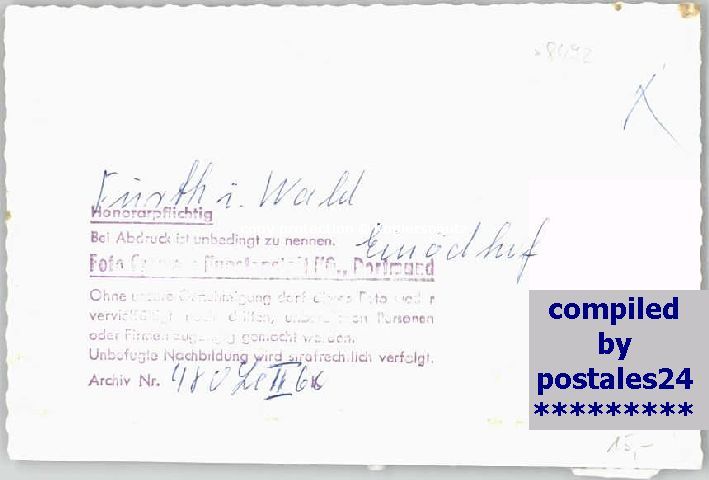 8492
X
Furth i. Wald
Honorarpflichtig
Bei Abdruck ist unbedingt zu nennen.
Einödhof
Foto Dortmund
Ohne unsere Genehmigung darf dieses Foto weder
vervielfältigt noch dritten, unberufenen Personen
oder Firmen zugängig gemacht werden.
Unbefugte Nachbildung wird strafrechtlich verfolgt.
Archiv Nr. 480
compiled
by
postales24
*********
15,-